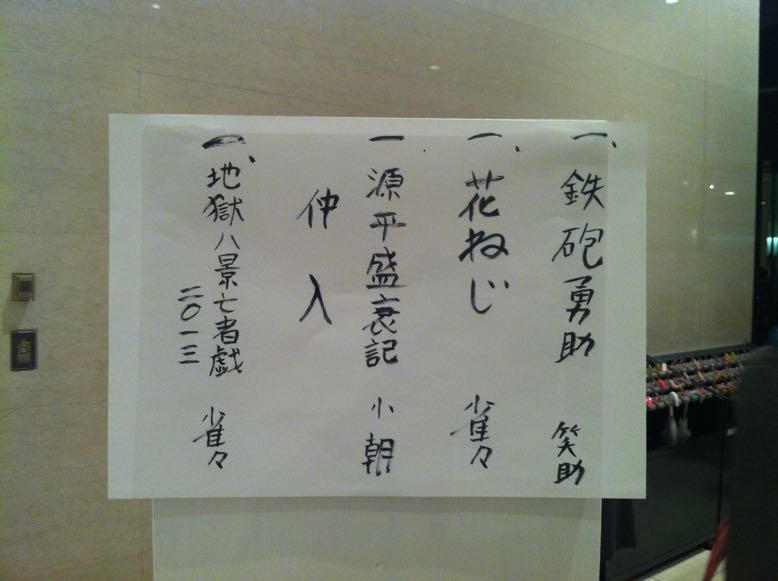 一、鉄砲勇助 笑助
一、花ねじ 雀々
一、源平盛衰記 小朝
仲入
一、地獄八景亡者戯 雀々
二〇一三